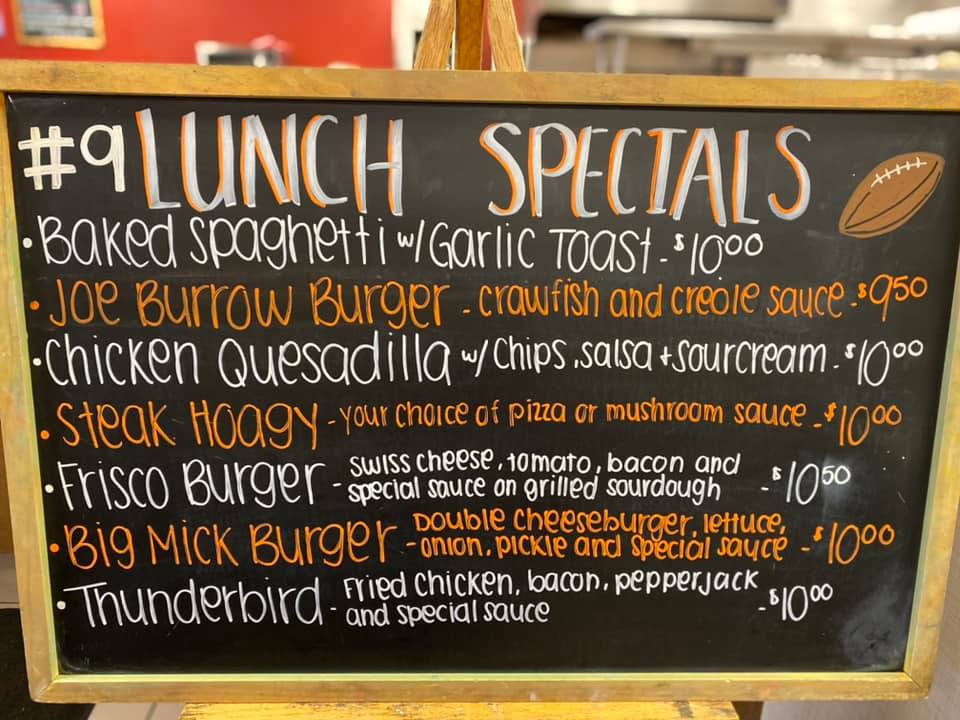 #9 LUNCH SPECIALS
• Baked Spaghetti w/ Garlic Toast - $10⁰⁰
• Joe Burrow Burger - crawfish and creole sauce - $9⁵⁰
• Chicken Quesadilla w/ chips, salsa + sourcream - $10⁰⁰
• Steak Hoagy - your choice of pizza or mushroom sauce - $10⁰⁰
• Frisco Burger - swiss cheese, tomato, bacon and
special sauce on grilled sourdough - $10⁵⁰
• Big Mick Burger - Double cheeseburger, lettuce,
onion, pickle and special sauce - $10⁰⁰
• Thunderbird - Fried chicken, bacon, pepperjack
and special sauce - $10⁰⁰